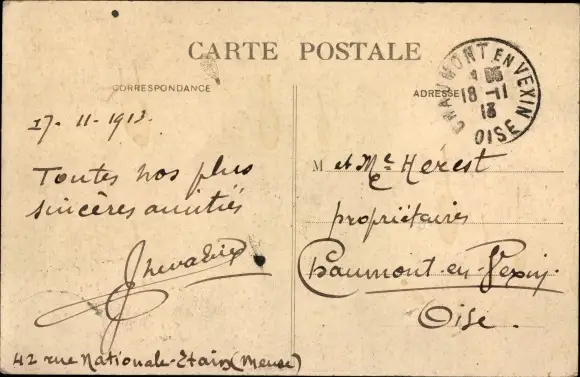 CARTE POSTALE
CORRESPONDANCE
ADRESSE
CHAUMONT EN VEXIN
18 -11
13
OISE
17-11-1913.
Toutes nos plus
sincères amitiés
42 rue Nationale-Etain (Meuse)
M et Me Herest
propriétaires
Chaumont-en-Vexin.
Oise.